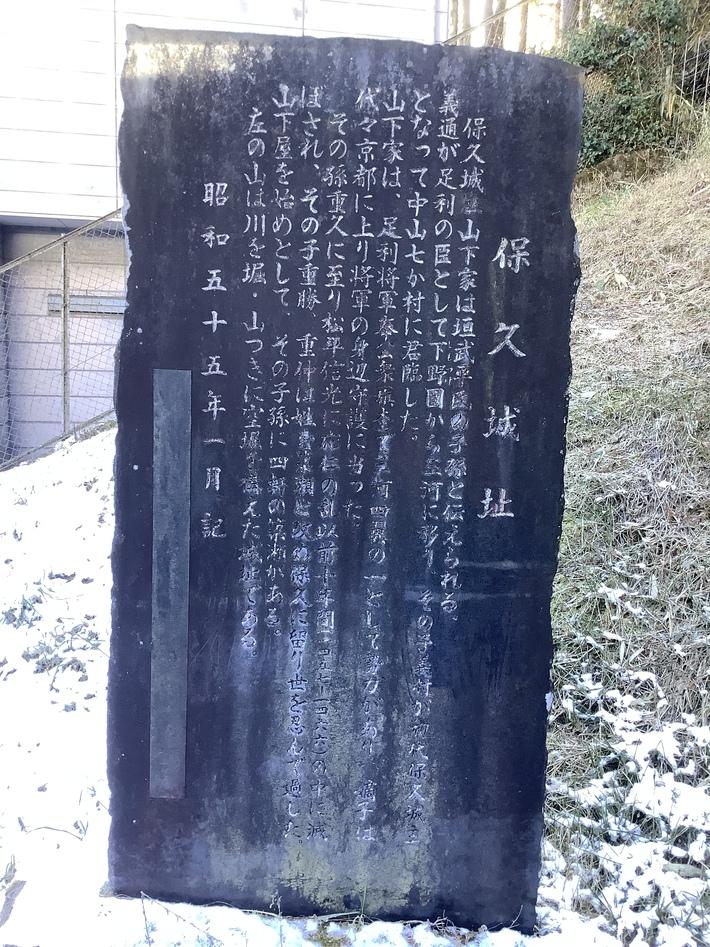 保久城址
保久城主山下家は垣武平氏の子孫と伝えられる。
義通が足利の臣として下野國から三河に移り、その子義村が初代保久城主
となって中山七か村に君臨した。
山下家は、足利将軍奉公衆 三河四の一として勢力があり、嫡子は
代々京都に上り将軍の身辺守護に当った。
その孫重久に至り松平信光に応仁の乱以前十年間(一四五七〜一四六六)の中に滅
ぼされ、その子重勝、重仲は姓を と改め保久に留り世を忍んで過した。
山下屋を始めとして、その子孫に四軒の宗家がある。
左の山は川を堀・山つきに空堀を構えた城址である。
昭和五十五年一月記